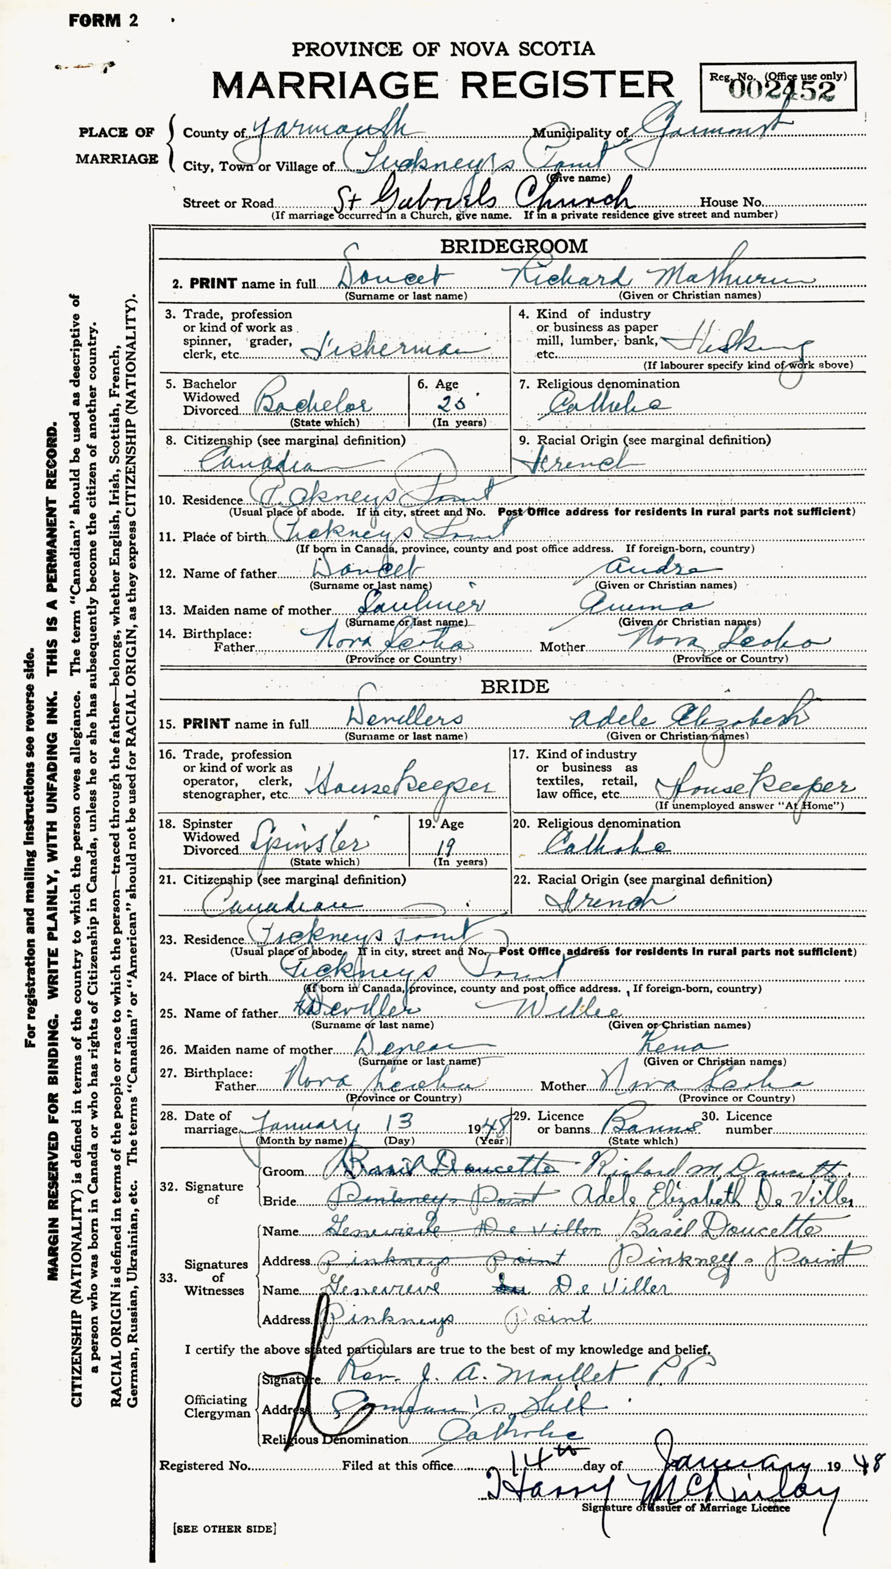 FORM 2
PROVINCE OF NOVA SCOTIA
MARRIAGE REGISTER
Reg. No. (Office use only)
002452
PLACE OF MARRIAGE
County of Yarmouth Municipality of
City, Town or Village of Point
(Give name)
Street or Road St Gabriels Church House No.
(If marriage occurred in a Church, give name. If in a private residence give street and number)
BRIDEGROOM
2. PRINT name in full Doucet Richard Mathurin
(Surname or last name) (Given or Christian names)
3. Trade, profession or kind of work as spinner, grader, clerk, etc. Fisherman
4. Kind of industry or business as paper mill, lumber, bank, etc.
(If labourer specify kind of work above)
5. Bachelor Widowed Divorced Bachelor
(State which)
6. Age
(In years)
7. Religious denomination Catholic
8. Citizenship (see marginal definition)
Canadian
9. Racial Origin (see marginal definition)
French
10. Residence Point
(Usual place of abode. If in city, street and No. Post Office address for residents in rural parts not sufficient)
11. Place of birth Point
(If born in Canada, province, county and post office address. If foreign-born, country)
12. Name of father Doucet Andre
(Surname or last name) (Given or Christian names)
13. Maiden name of mother Saulnier
(Surname or last name) (Given or Christian names)
14. Birthplace:
Father Nova Scotia Mother Nova Scotia
(Province or Country) (Province or Country)
BRIDE
15. PRINT name in full Devillers Adele Elizabeth
(Surname or last name) (Given or Christian names)
16. Trade, profession or kind of work as operator, clerk, stenographer, etc. Housekeeper
17. Kind of industry or business as textiles, retail, law office, etc. Housekeeper
(If unemployed answer "At Home")
18. Spinster Widowed Divorced Spinster
(State which)
19. Age 19
(In years)
20. Religious denomination Catholic
21. Citizenship (see marginal definition)
Canadian
22. Racial Origin (see marginal definition)
French
23. Residence Point
(Usual place of abode. If in city, street and No. Post Office address for residents in rural parts not sufficient)
24. Place of birth Point
(If born in Canada, province, county and post office address. If foreign-born, country)
25. Name of father Deviller Willie
(Surname or last name) (Given or Christian names)
26. Maiden name of mother
(Surname or last name) (Given or Christian names)
27. Birthplace:
Father Nova Scotia Mother Nova Scotia
(Province or Country) (Province or Country)
28. Date of marriage January 13 1948
(Month by name) (Day) (Year)
29. Licence or banns Banns
(State which)
30. Licence number
32. Signature of
Groom Basil Doucette Richard M. Doucette
Bride Pinkneys Point Adele Elizabeth De Viller
33. Signatures of Witnesses
Name Genevieve De Viller Basel Doucette
Address Pinkneys Point Pinkneys Point
Name Genevieve De Viller
Address Pinkneys Point
I certify the above stated particulars are true to the best of my knowledge and belief.
Officiating Clergyman
Signature Rev. J. A. Maillet P P
Address Comeau's Hill
Religious Denomination Catholic
Registered No. Filed at this office 14th day of January 1948
Harry McKinlay
Signature of Issuer of Marriage Licence
[SEE OTHER SIDE]
For registration and mailing instructions see reverse side.
MARGIN RESERVED FOR BINDING. WRITE PLAINLY, WITH UNFADING INK. THIS IS A PERMANENT RECORD.
CITIZENSHIP (NATIONALITY) is defined in terms of the country to which the person owes allegiance. The term "Canadian" should be used as descriptive of
a person who was born in Canada or who has rights of Citizenship in Canada, unless he or she has subsequently become the citizen of another country.
RACIAL ORIGIN is defined in terms of the people or race to which the person—traced through the father—belongs, whether English, Irish, Scottish, French,
German, Russian, Ukrainian, etc. The terms "Canadian" or "American" should not be used for RACIAL ORIGIN, as they express CITIZENSHIP (NATIONALITY).